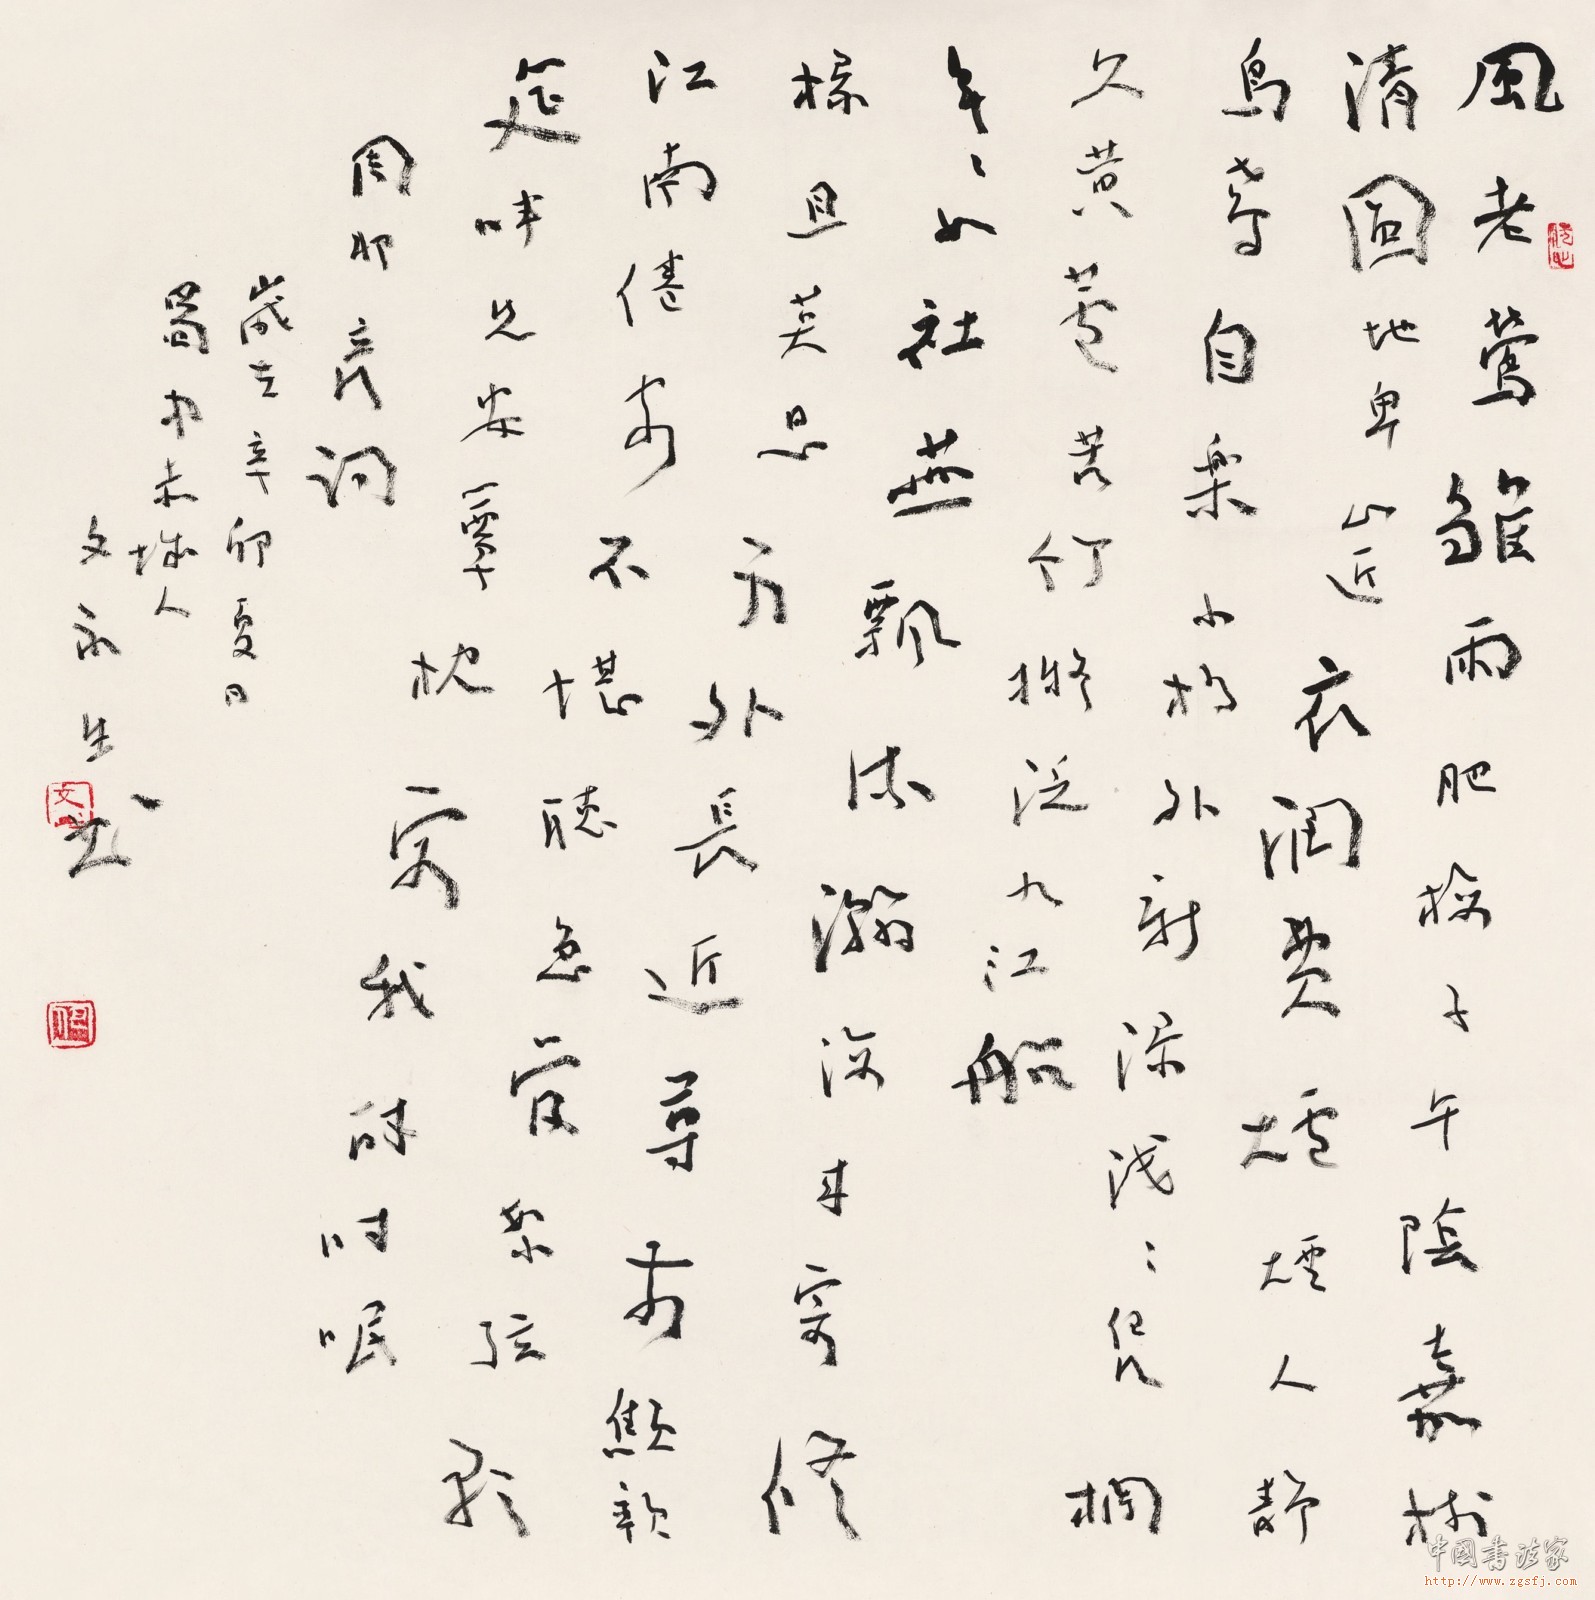 風老鶯雛雨肥梅子午陰嘉樹
清圆地卑山近衣潤費爐煙人靜
鳥鳶自樂小橋外新渌浅〻凭欄
久黄蘆苦竹擬泛九江船
年〻如社燕飄流瀚海来寄修
椽且莫思身外長近尊前顦顇
江南倦客不堪聽急管繁弦歌
筵畔先安簟枕容我醉時眠
周邦彦詞
歲在辛卯夏日
蜀中未城人
文永生
中国书法家
http://www.zgsfj.com